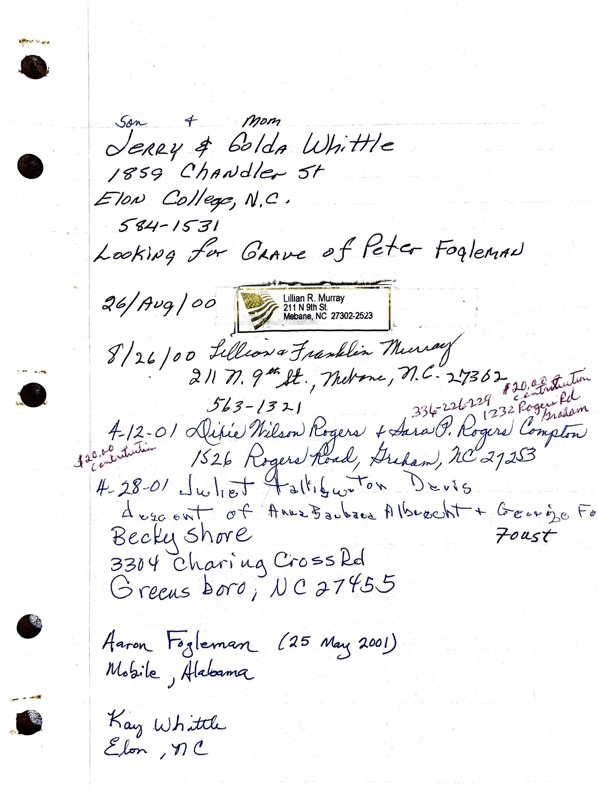 Son & Mom
Jerry & Golda Whittle
1859 Chandler St
Elon College, N.C.
584-1531
Looking for Grave of Peter Fogleman
26/Aug/00
Lillian R. Murray
211 N 9th St.
Mebane, NC 27302-2523
8/26/00 Lillian & Franklin Murray
211 N. 9th St., Mebane, N.C. 27302
563-1321
$20.00
contribution
336-226-229
1232 Rogers Rd
Graham
4-12-01 Dixie Wilson Rogers & Sara P. Rogers Compton
$20.00
contribution
1526 Rogers Road, Graham, NC 27253
4-28-01 Juliet Davis
descent of Anna Barbara Albrecht + George Fo
Foust
Becky Shore
3304 Charing Cross Rd
Greensboro, NC 27455
Aaron Fogleman (25 May 2001)
Mobile, Alabama
Kay Whittle
Elon, NC